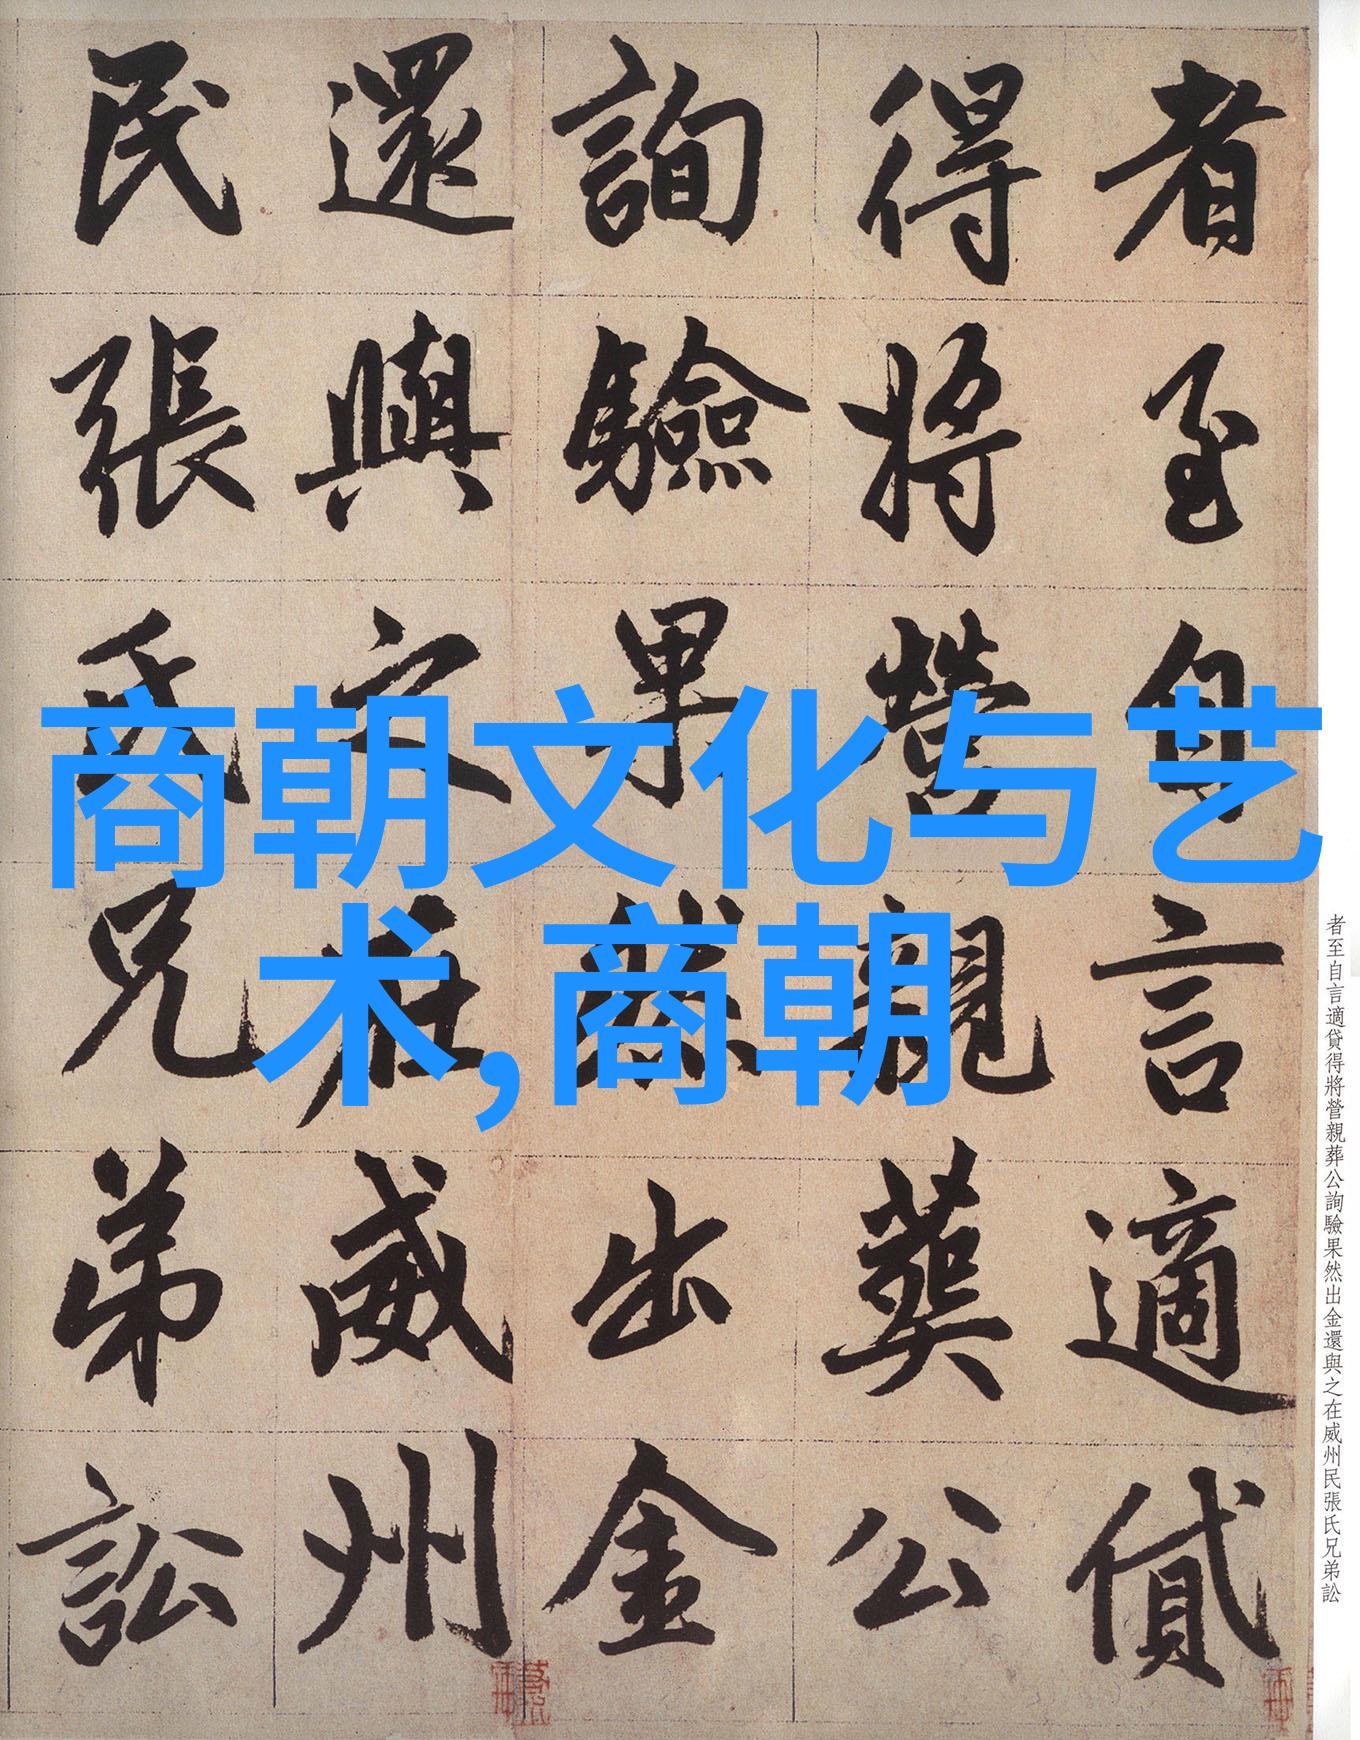 商朝文化与艺
术,商朝
者至自言適貸
得將營親葬公
詢驗果然出金
還與之在威州
民張氏兄弟訟
者至自言適貸得將營親葬公詢驗果然出金還與之在威州民張氏兄弟訟